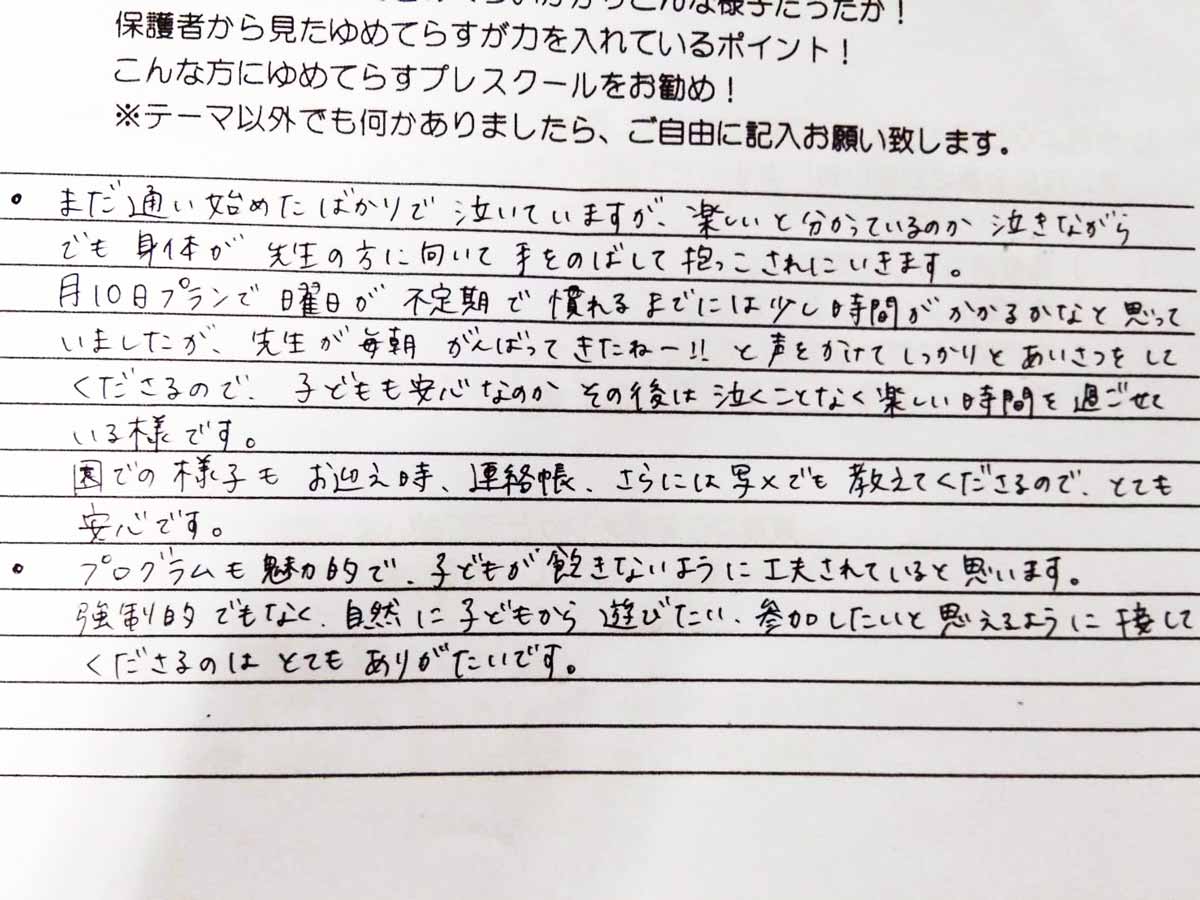 様子だったか！
保護者から見たゆめてらすが力を入れているポイント！
こんな方にゆめてらすプレスクールをお勧め！
※テーマ以外でも何かありましたら、ご自由に記入お願い致します。
・まだ通い始めたばかりで泣いていますが、楽しいと分かっているのか泣きながら
でも身体が先生の方に向いて手をのばして抱っこされにいきます。
月10日プランで日曜日が不定期で慣れるまでには少し時間がかかるかなと思って
いましたが、先生が毎朝がんばってきたねー!!と声をかけてしっかりとあいさつをして
くださるので、子どもも安心なのかその後は泣くことなく楽しい時間を過ごせて
いる様です。
園での様子もお迎え時、連絡帳、さらには写メでも教えてくださるので、とても
安心です。
・プログラムも魅力的で、子どもが飽きないように工夫されていると思います。
強制的でもなく、自然に子どもから遊びたい、参加したいと思えるように接して
くださるのはとてもありがたいです。